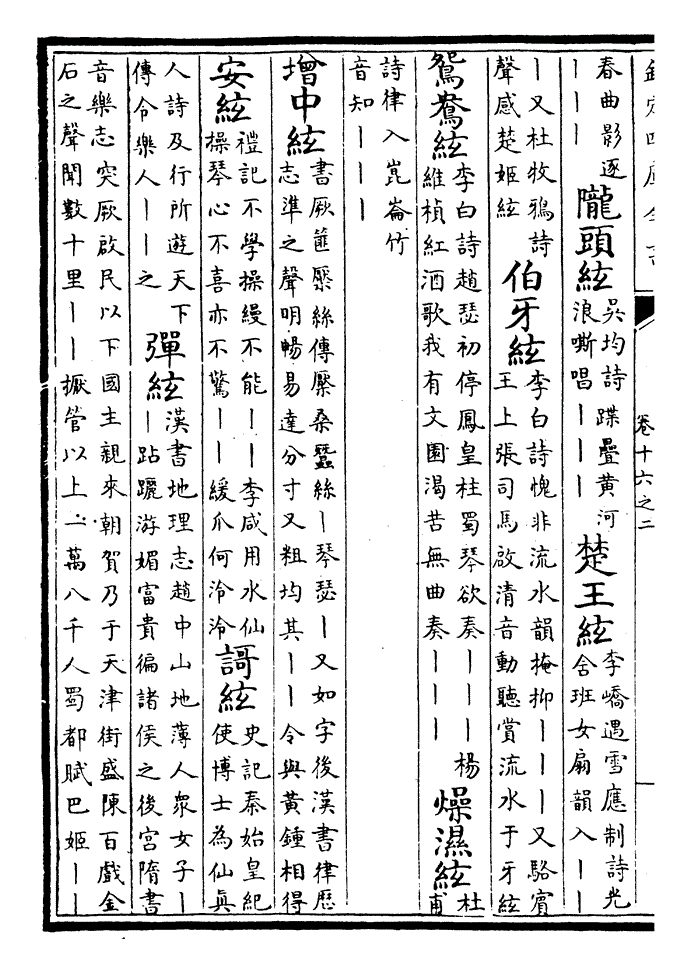 欽定四庫全書
卷十六之二
春曲影逐
｜｜｜
隴頭絃
吳均詩蹀疊黃河
浪嘶唱｜｜｜
楚王絃
李嶠遇雪應制詩光
舍班女扇韻入｜｜
｜又杜牧鴉詩
聲感楚姬絃
伯牙絃
李白詩愧非流水韻掩抑｜｜｜又駱賓
王上張司馬啟清音動聽賞流水于牙絃
鴛鴦絃
李白詩趙瑟初停鳳皇柱蜀琴欲奏｜｜｜楊
維楨紅酒歌我有文園渴苦無曲奏｜｜｜
燥濕絃
杜
甫
詩律入崑崙竹
音知｜｜｜
增中絃
書厥篚檿絲傳檿桑蠶絲｜琴瑟｜又如字後漢書律歷
志準之聲明暢易達分寸又粗均其｜｜令與黃鍾相得
安絃
禮記不學操縵不能｜｜李咸用水仙
操琴心不喜亦不驚｜｜緩爪何泠泠
謌絃
史記秦始皇紀
使博士為仙真
人詩及行所遊天下
傳令樂人｜｜之
彈絃
漢書地理志趙中山地薄人眾女子｜
｜跕躧游媚富貴徧諸侯之後宮隋書
音樂志突厥啟民以下國主親來朝賀乃于天津街盛陳百戲金
石之聲聞數十里｜｜撅管以上一萬八千人蜀都賦巴姬｜｜